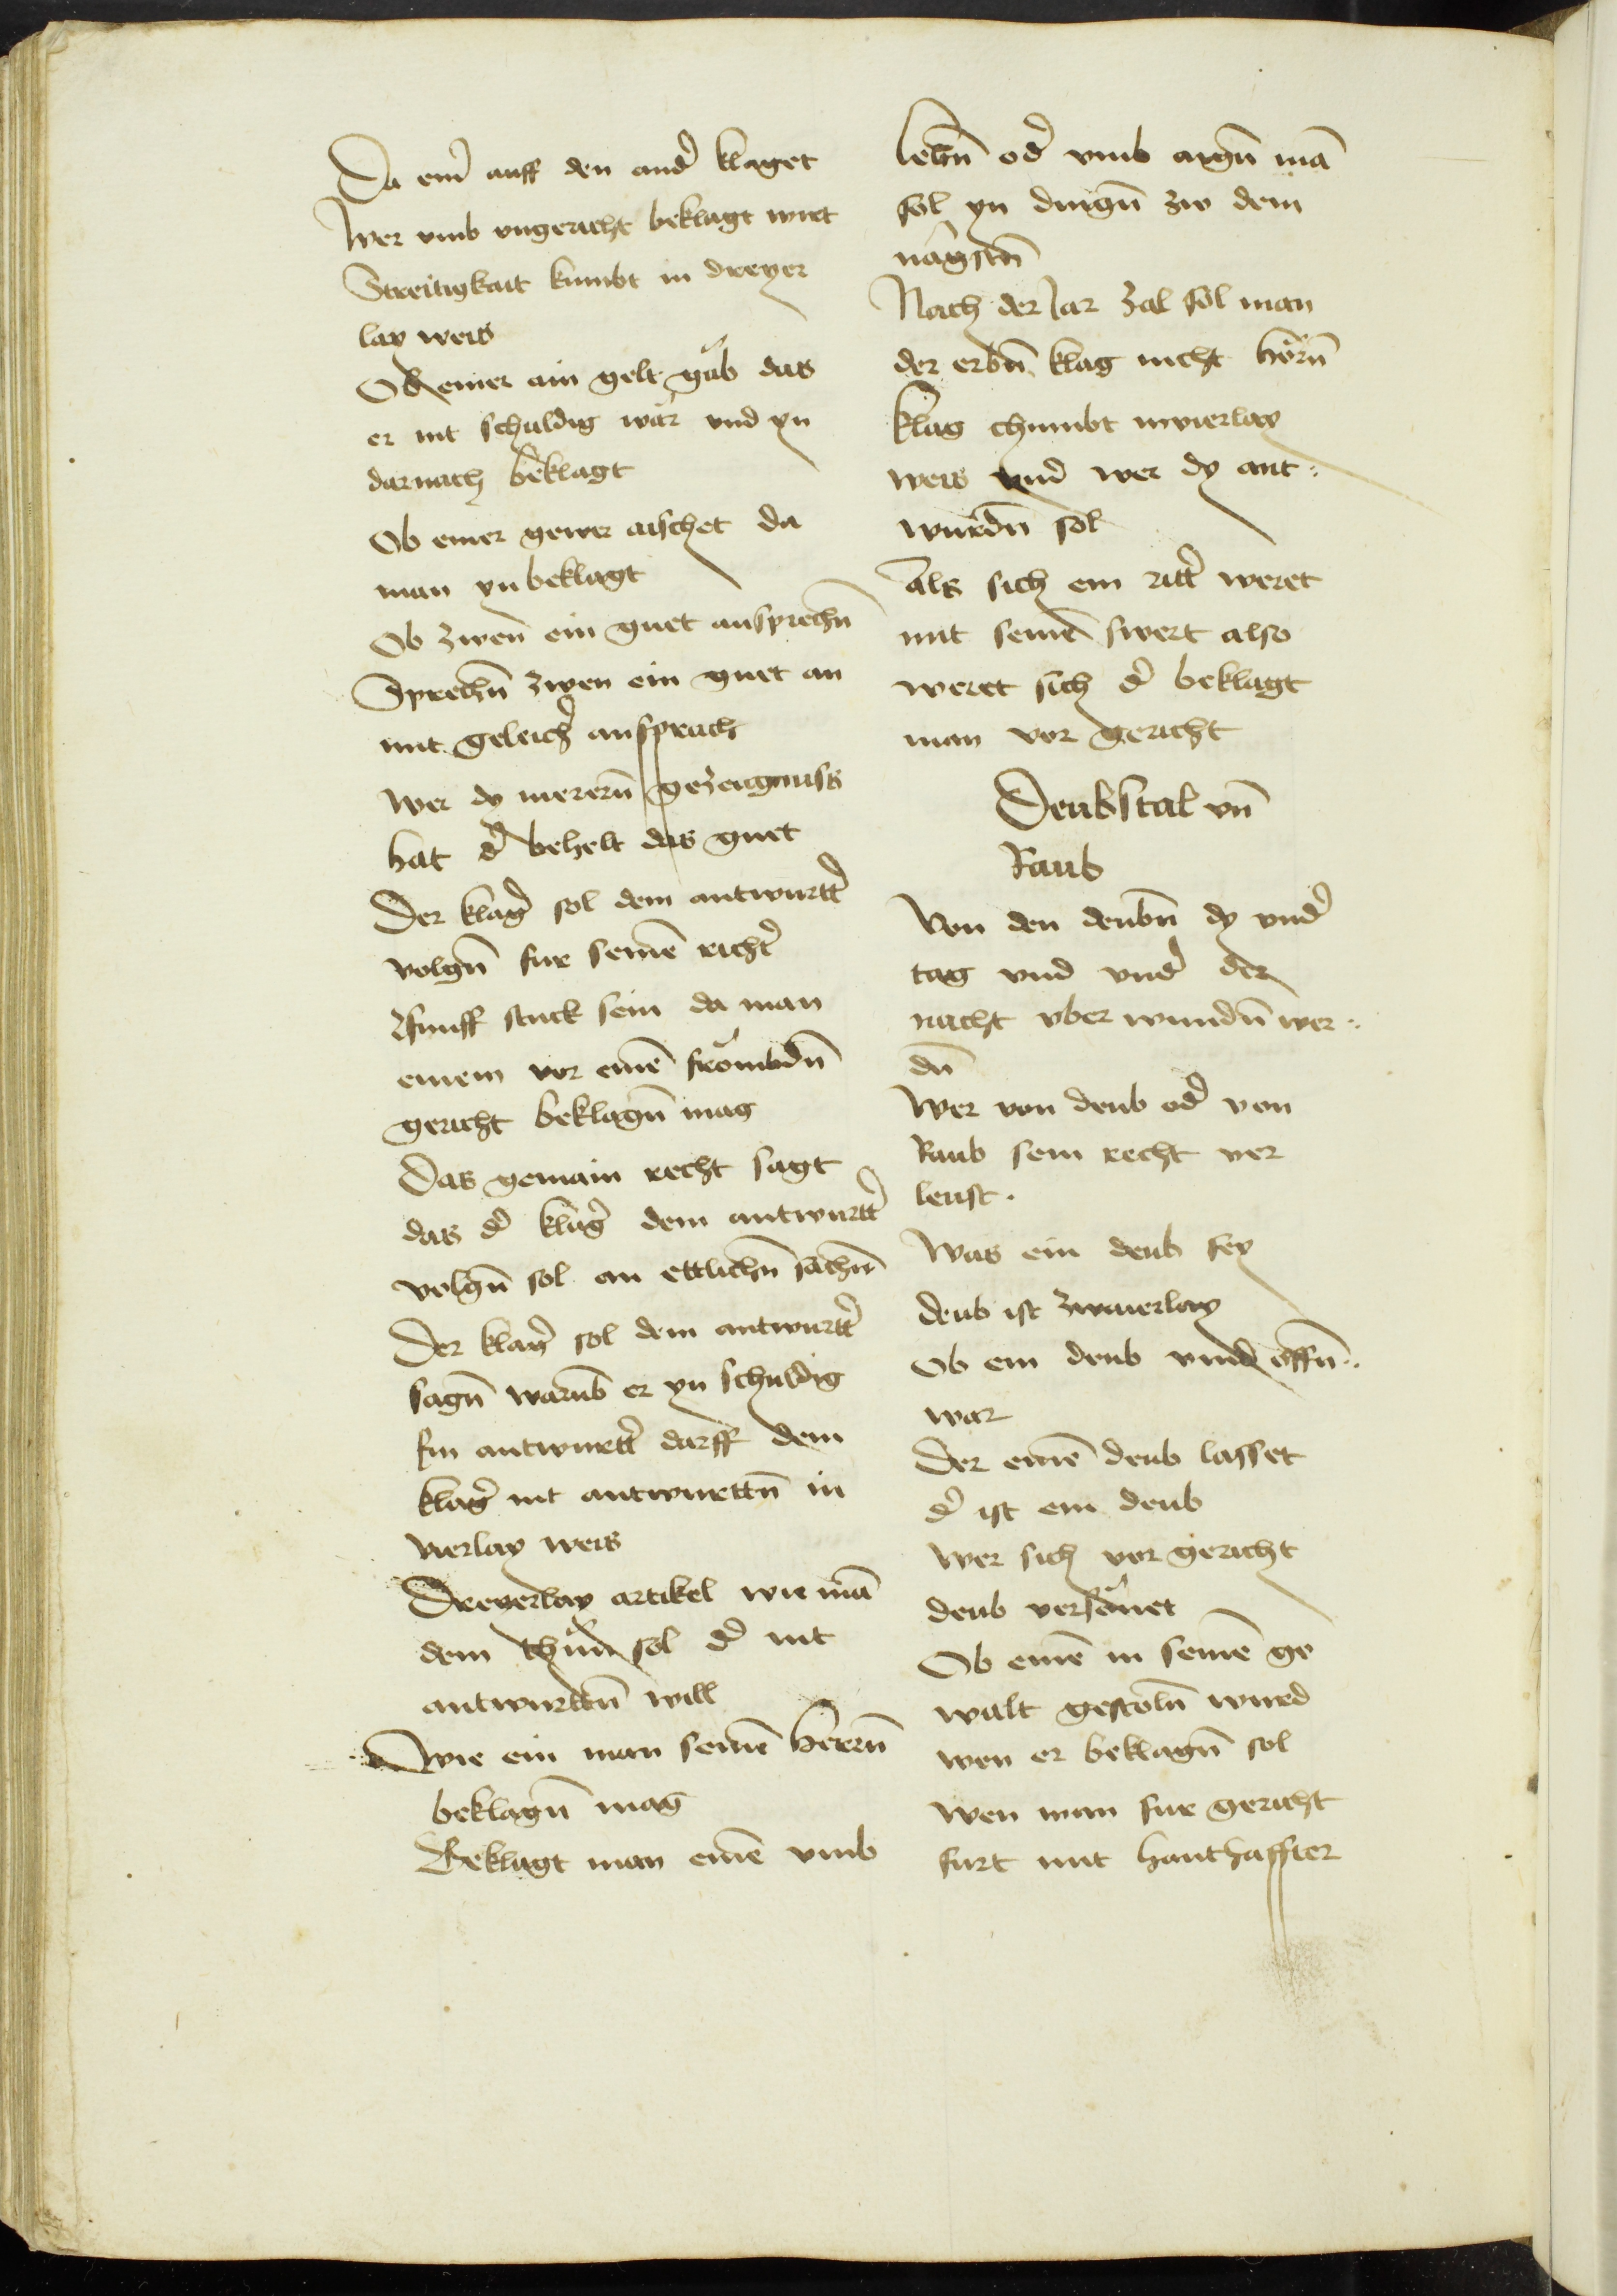 Da ein̄ auff den and̄ klaget
Wer vmb vngericht beklagt wirt
Streitigkait kumbt in dreyer
lay weis
Ob einer ain gelt gäb das
er nit schuldig wär vnd yn
darnach beklagt
Ob einer gewer aischet da
man yn beklagt
Ob zwen ein guet ansprechn̄
Sprechn̄ zwen ein guet an
mit geleich̄ ansprach
Wer dy merern̄ gezeugnuss
hat d̄ behelt das guet
Der klaḡ sol dem antwurtt̄
volgn̄ fur seinē richt̄
Funff stuck sein da man
einem vor einē frömbdn̄
gericht beklagn̄ mag
Das gemain recht sagt
das d̄ klaḡ dem antwurtt̄
volgn̄ sol an ettlichn̄ sachn̄
Der klaḡ sol dem antwurtt̄
sagn̄ warūb er yn schuldig
Ein antwurtt̄ darff dem
klaḡ nit antwurttn̄ in
vierlay weis
Dreyerlay artikel wie mā
dem thün sol d̄ nit
antwurttn̄ will
Wie ein man seinē herrn̄
beklagn̄ mag
Beklagt man einē vmb
lehn̄ od̄ vmb aygn̄ mā
sol yn dingn̄ zw dem
nägstn̄
Nach der Jar zal sol man
der erbn̄ klag nicht hörn̄
Klag chumbt in vierlay
weis vnd wer dy ant:
wurdn̄ sol
Als sich ein ritt̄ weret
mit seinē swert also
weret sich d̄ beklagt
man vor gericht
Deubstal vn̄
Raub
Von den deubn̄ dy vnd̄
tag vnd vnd̄ der
nacht vber wundn̄ wer:
dn̄
Wer von deub od̄ von
Raub sein recht ver
leust.
Was ein deub sey
deub ist zwaierlay
Ob ein deub vnd offn̄:
war
Der einē deub lasset
d̄ ist ein deub
Wer sich vor gericht
deub versönet
Ob einē in seinē ge
walt gestoln̄ wurd
wen er beklagn̄ sol
Wen man fur gericht
furt mit hanthaffter